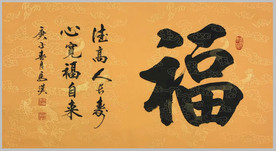 福
德高人长寿
心宽福自来
庚子春月